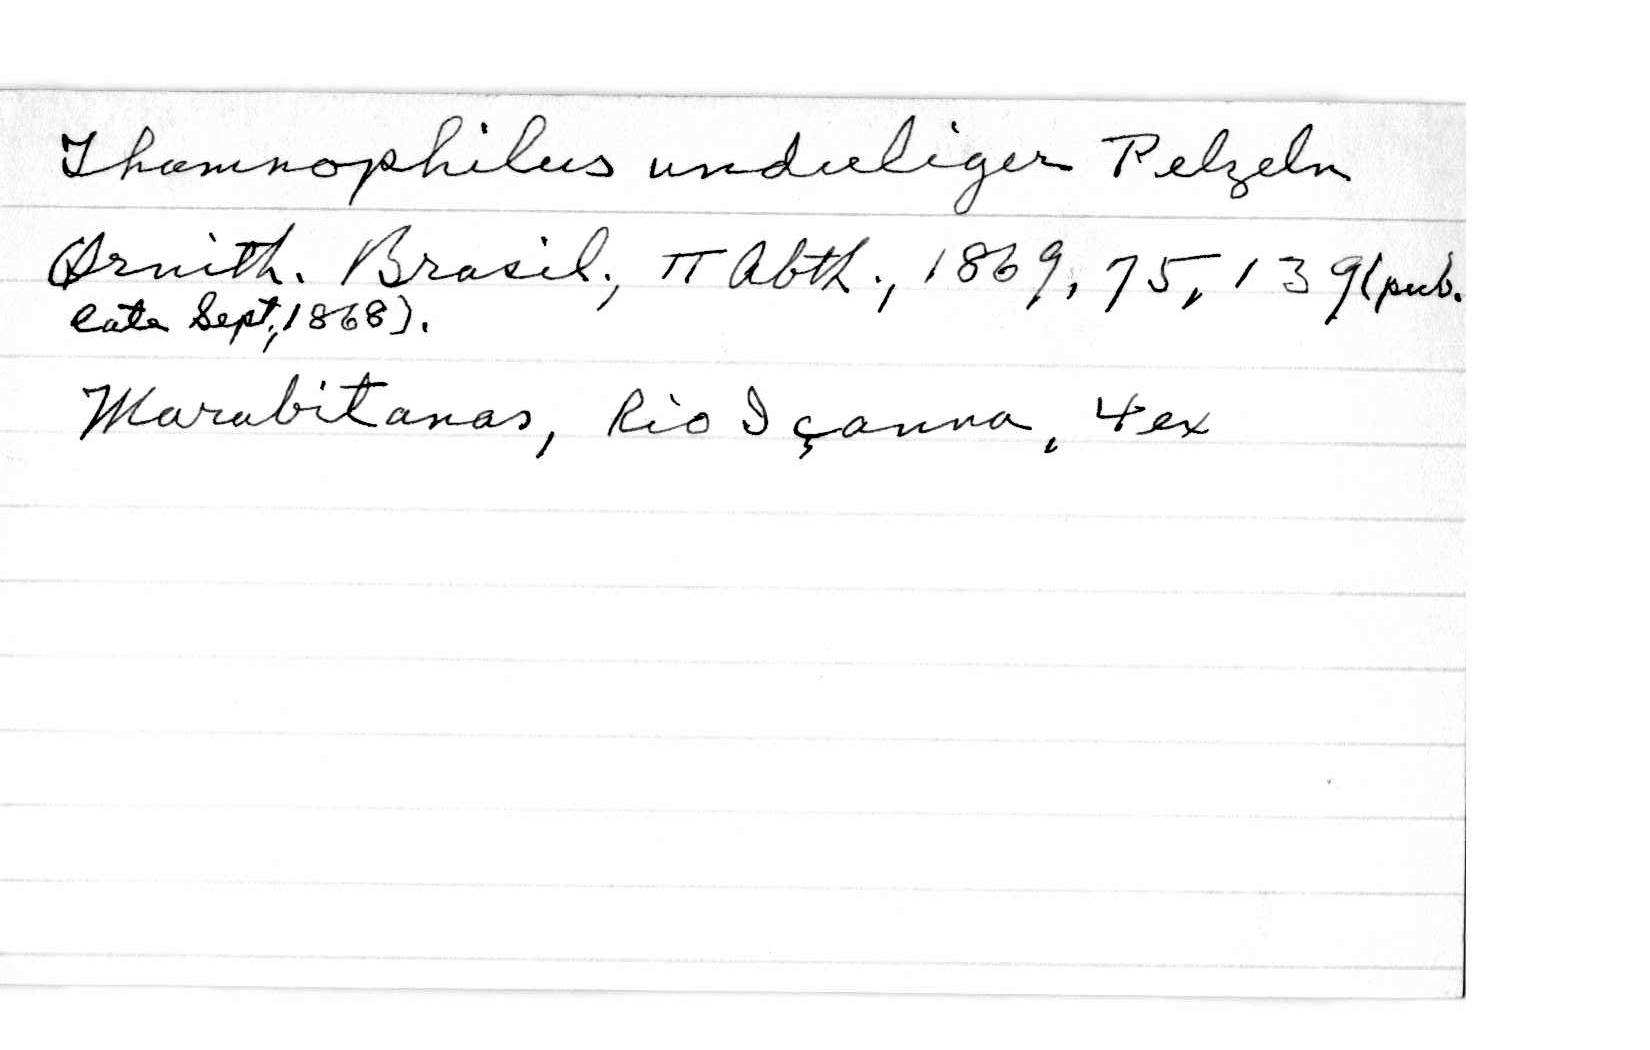 Thamnophilus unduliger Pelzeln
Ornith. Brasil., II Abth., 1869, 75, 139 (pub.
late Sept., 1868).
Marabitanas, Rio Içanna, 4 ex